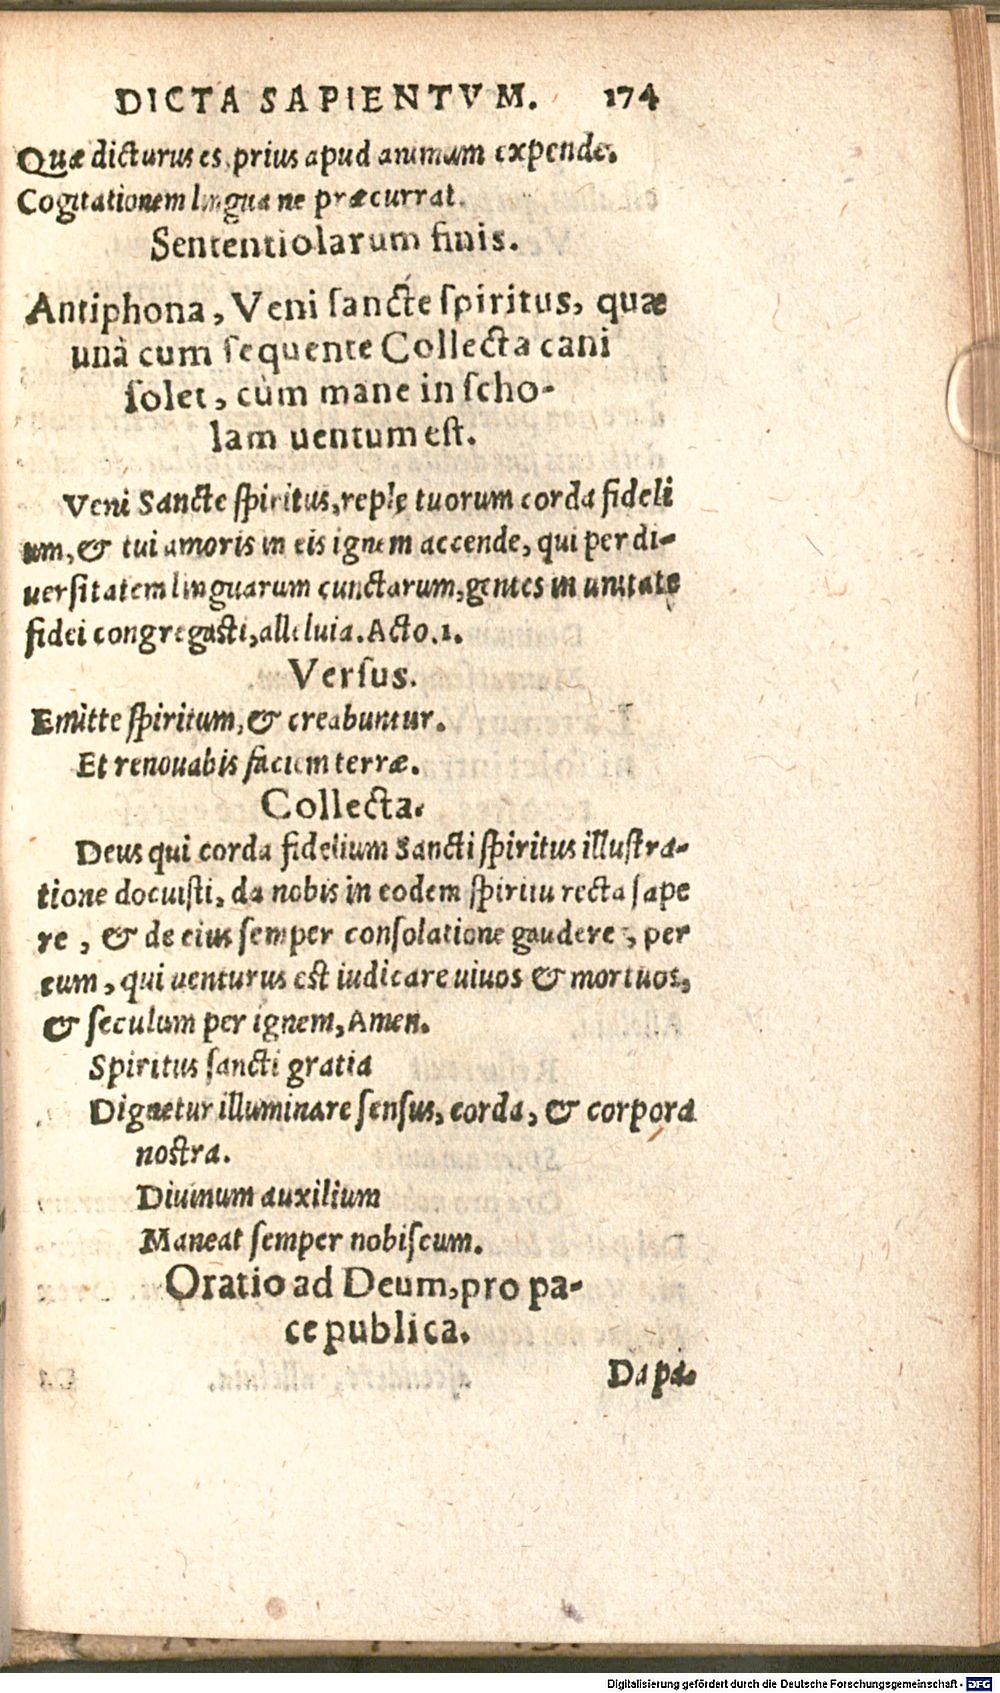 DICTA SAPIENTVM. 174
Quæ dicturus es, prius apud animum expende.
Cogitationem lingua ne præcurrat.
Sententiolarum finis.
Antiphona, Veni sancte spiritus, quæ
unà cum sequente Collecta cani
solet, cùm mane in scho-
lam uentum est.
Veni Sancte spiritus, reple tuorum corda fideli
um, & tui amoris in eis ignem accende, qui per di-
uersitatem linguarum cunctarum, gentes in unitate
fidei congregasti, alleluia. Acto. 1.
Versus.
Emitte spiritum, & creabuntur.
Et renouabis faciem terræ.
Collecta.
Deus qui corda fidelium Sancti spiritus illustra-
tione docuisti, da nobis in eodem spiritu recta sape
re, & de eius semper consolatione gaudere, per
eum, qui uenturus est iudicare uiuos & mortuos,
& seculum per ignem, Amen.
Spiritus sancti gratia
Dignetur illuminare sensus, corda, & corpora
nostra.
Diuinum auxilium
Maneat semper nobiscum.
Oratio ad Deum, pro pa-
ce publica.
Da pa-
Digitalisierung gefördert durch die Deutsche Forschungsgemeinschaft - DFG